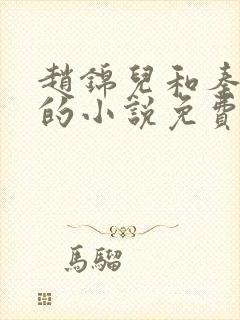 趙錦兒和秦
的小說免費
馬騮